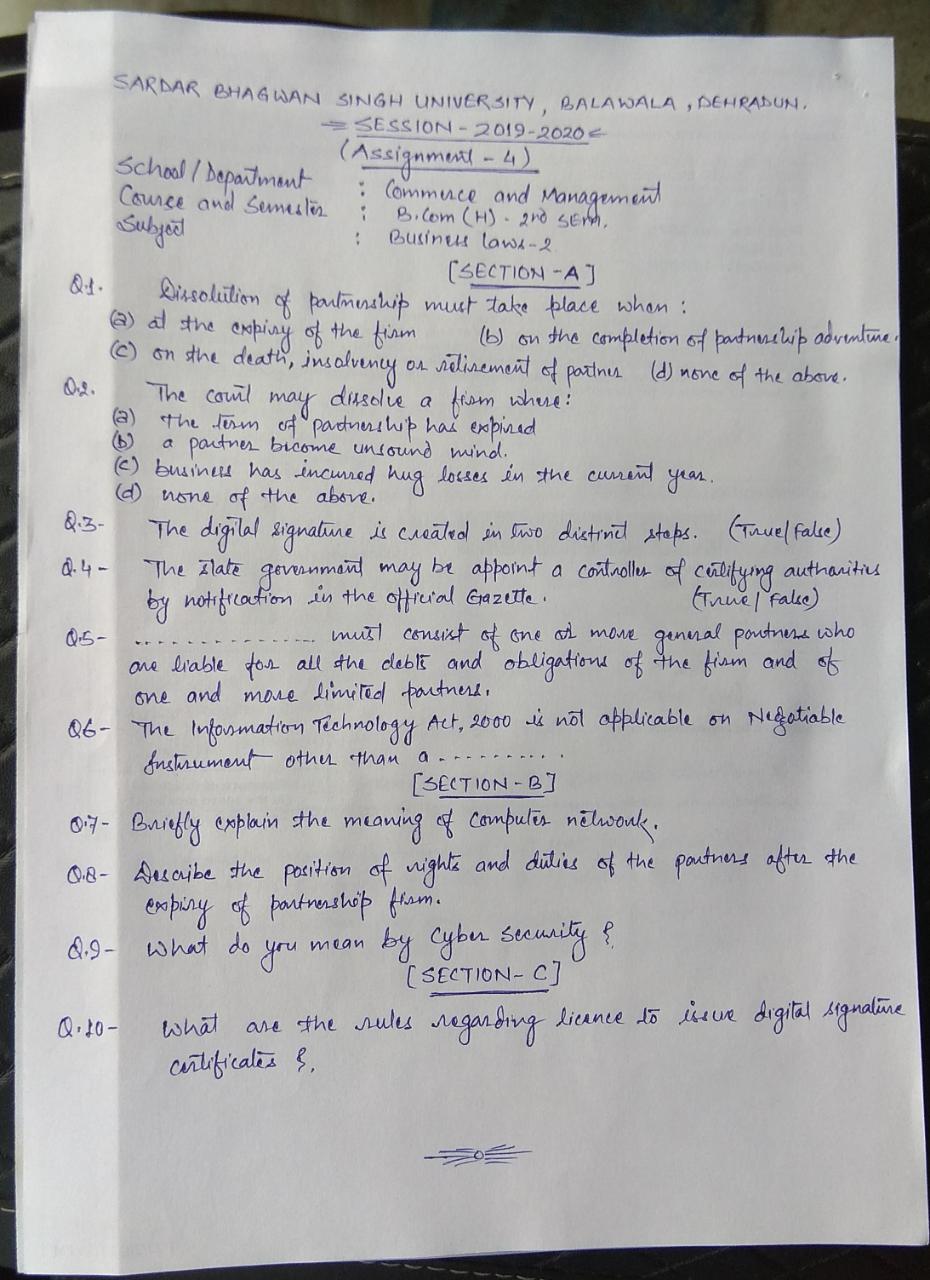 SARDAR BHAGWAN SINGH UNIVERSITY, BALAWALA, DEHRADUN.
SESSION-2019-2020
(Assignment-4)
School/Department : Commerce and Management
Course and Semester : B.Com (H). 2nd SEM.
Subject : Business laws-2
[SECTION-A]
Q.1. Dissolution of partnership must take place when:
(a) at the expiry of the firm (b) on the completion of partnership adventure.
(c) on the death, insolvency or retirement of partner (d) none of the above.
Q.2. The court may dissolve a firm where:
(a) The term of partnership has expired
(b) a partner become unsound mind.
(c) business has incurred hug losses in the current year.
(d) none of the above.
Q.3- The digital signature is created in two distinct steps. (True/False)
Q.4- The state government may be appoint a controller of certifying authorities
by notification in the official Gazette. (True/False)
Q.5- ................ must consist of one or more general partners who
are liable for all the debts and obligations of the firm and of
one and more limited partners.
Q6- The Information Technology Act, 2000 is not applicable on Negotiable
Instrument other than a ...........
[SECTION-B]
Q.7- Briefly explain the meaning of Computer network.
Q.8- Describe the position of rights and duties of the partners after the
expiry of partnership firm.
Q.9- What do you mean by Cyber Security ?
[SECTION-C]
Q.10- What are the rules regarding licence to issue digital signature
certificates ?